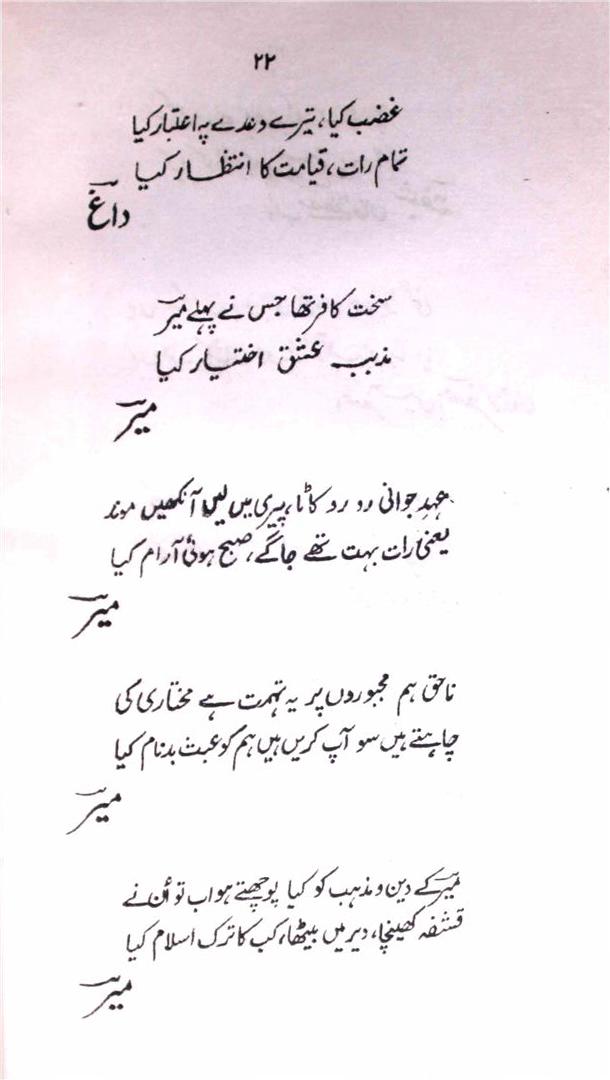 ۲۲
غضب کیا، تیرے وعدے پہ اعتبار کیا
تمام رات، قیامت کا انتظار کیا
داغؔ
سخت کافر تھا جس نے پہلے میرؔ
مذہب عشق اختیار کیا
میرؔ
عہدِ جوانی رو رو کاٹا، پیری میں لیں آنکھیں موند
یعنی رات بہت تھے جاگے، صبح ہوئی آرام کیا
میرؔ
ناحق ہم مجبوروں پر یہ تہمت ہے مختاری کی
چاہتے ہیں سو آپ کریں ہیں ہم کو عبث بدنام کیا
میرؔ
میرؔ کے دین و مذہب کو کیا پوچھتے ہو اب تو اُن نے
قشقہ کھینچا، دیر میں بیٹھا، کب کا ترک اسلام کیا
میرؔ